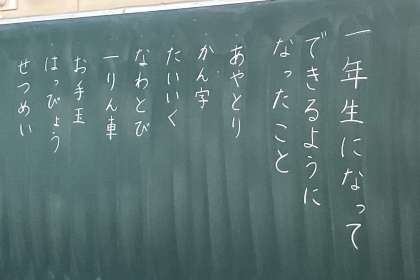 一年生になって
できるように
なったこと
・あやとり
・かん字
・たいいく
・なわとび
・一りん車
・お手玉
・はっぴょう
・せつめい